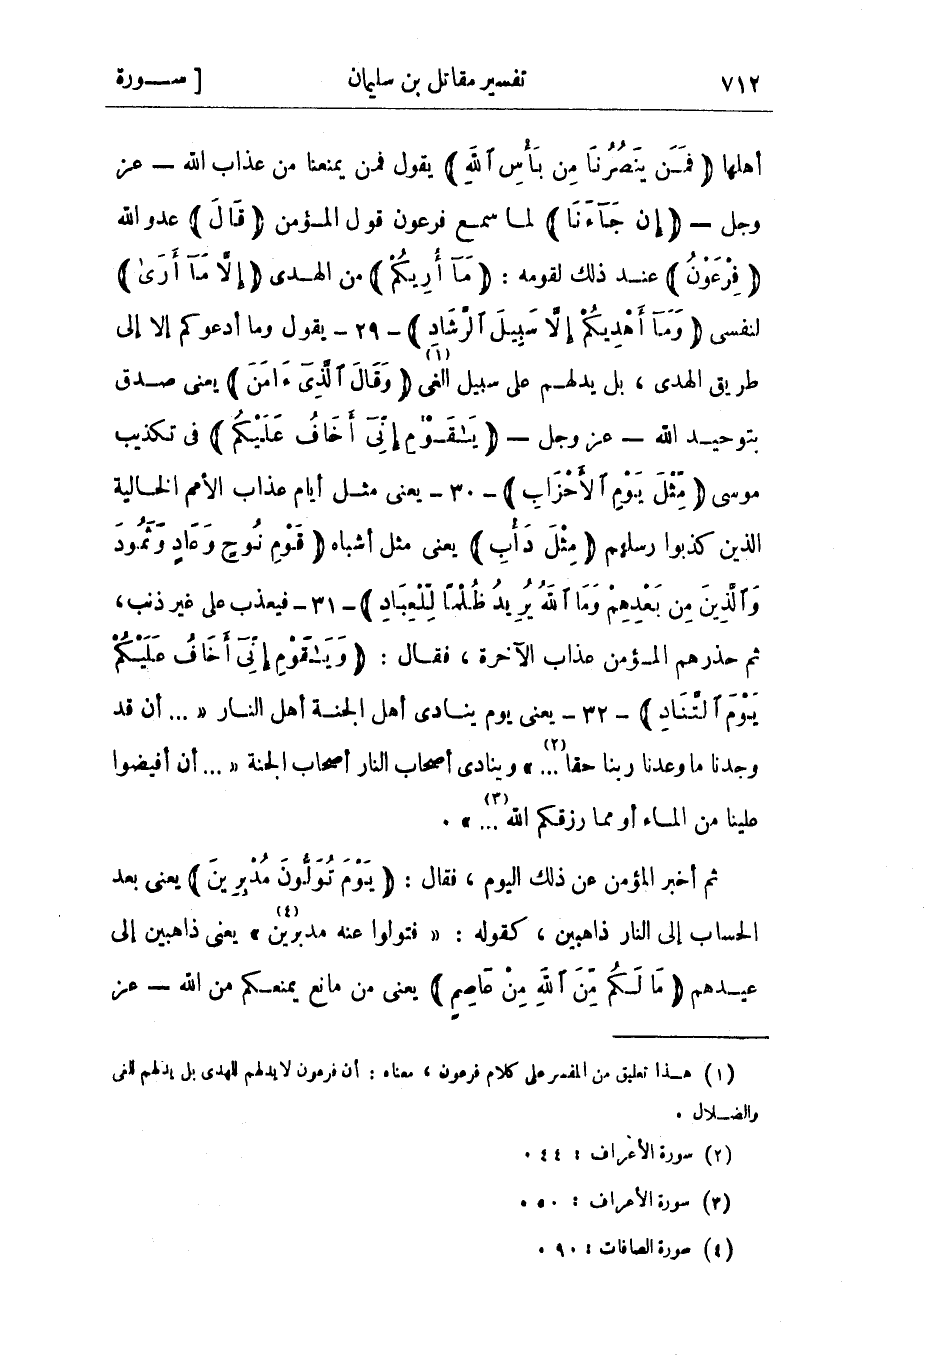 ٧١٢ تفسير مقاتل بن سليمان [ ســورة
أهلها ( فَمَن يَنصُرُنَا مِن بَأْسِ ٱللَّهِ ) يقول فمن يمنعنا من عذاب الله — عز
وجل — ( إِن جَآءَنَا ) لما سمع فرعون قول المؤمن ( قَالَ ) عدو الله
( فِرْعَوْنُ ) عند ذلك لقومه : ( مَآ أُرِيكُمْ ) من الهدى ( إِلَّا مَآ أَرَىٰ )
لنفسى ( وَمَآ أَهْدِيكُمْ إِلَّا سَبِيلَ ٱلرَّشَادِ ) - ٢٩ - يقول وما أدعوكم إلا إلى
طريق الهدى ، بل يدلهم على سبيل الغى (١) ( وَقَالَ ٱلَّذِىٓ ءَامَنَ ) يعنى صدق
بتوحيد الله — عز وجل — ( يَـٰقَوْمِ إِنِّىٓ أَخَافُ عَلَيْكُم ) فى تكذيب
موسى ( مِّثْلَ يَوْمِ ٱلْأَحْزَابِ ) - ٣٠ - يعنى مثل أيام عذاب الأمم الخالية
الذين كذبوا رسلهم ( مِثْلَ دَأْبِ ) يعنى مثل أشباه ( قَوْمِ نُوحٍ وَعَادٍ وَثَمُودَ
وَٱلَّذِينَ مِن بَعْدِهِمْ وَمَا ٱللَّهُ يُرِيدُ ظُلْمًا لِّلْعِبَادِ ) - ٣١ - فيعذب على غير ذنب ،
ثم حذرهم المؤمن عذاب الآخرة ، فقال : ( وَيَـٰقَوْمِ إِنِّىٓ أَخَافُ عَلَيْكُمْ
يَوْمَ ٱلتَّنَادِ ) - ٣٢ - يعنى يوم ينادى أهل الجنة أهل النار « ... أن قد
وجدنا ما وعدنا ربنا حقا ... (٢) » وينادى أصحاب النار أصحاب الجنة « ... أن أفيضوا
علينا من الماء أو مما رزقكم الله ... (٣) » .
ثم أخبر المؤمن عن ذلك اليوم ، فقال : ( يَوْمَ تُوَلُّونَ مُدْبِرِينَ ) يعنى بعد
الحساب إلى النار ذاهبين ، كقوله : « فتولوا عنه مدبرين (٤) » يعنى ذاهبين إلى
عيدهم ( مَا لَكُم مِّنَ ٱللَّهِ مِنْ عَاصِمٍ ) يعنى من مانع يمنعكم من الله — عز
(١) هذا تعليق من المفسر على كلام فرعون ، معناه : أن فرعون لا يدلهم للهدى بل يدلهم للغى
والضلال .
(٢) سورة الأعراف : ٤٤ .
(٣) سورة الأعراف : ٥٠ .
(٤) صورة الصافات : ٩٠ .